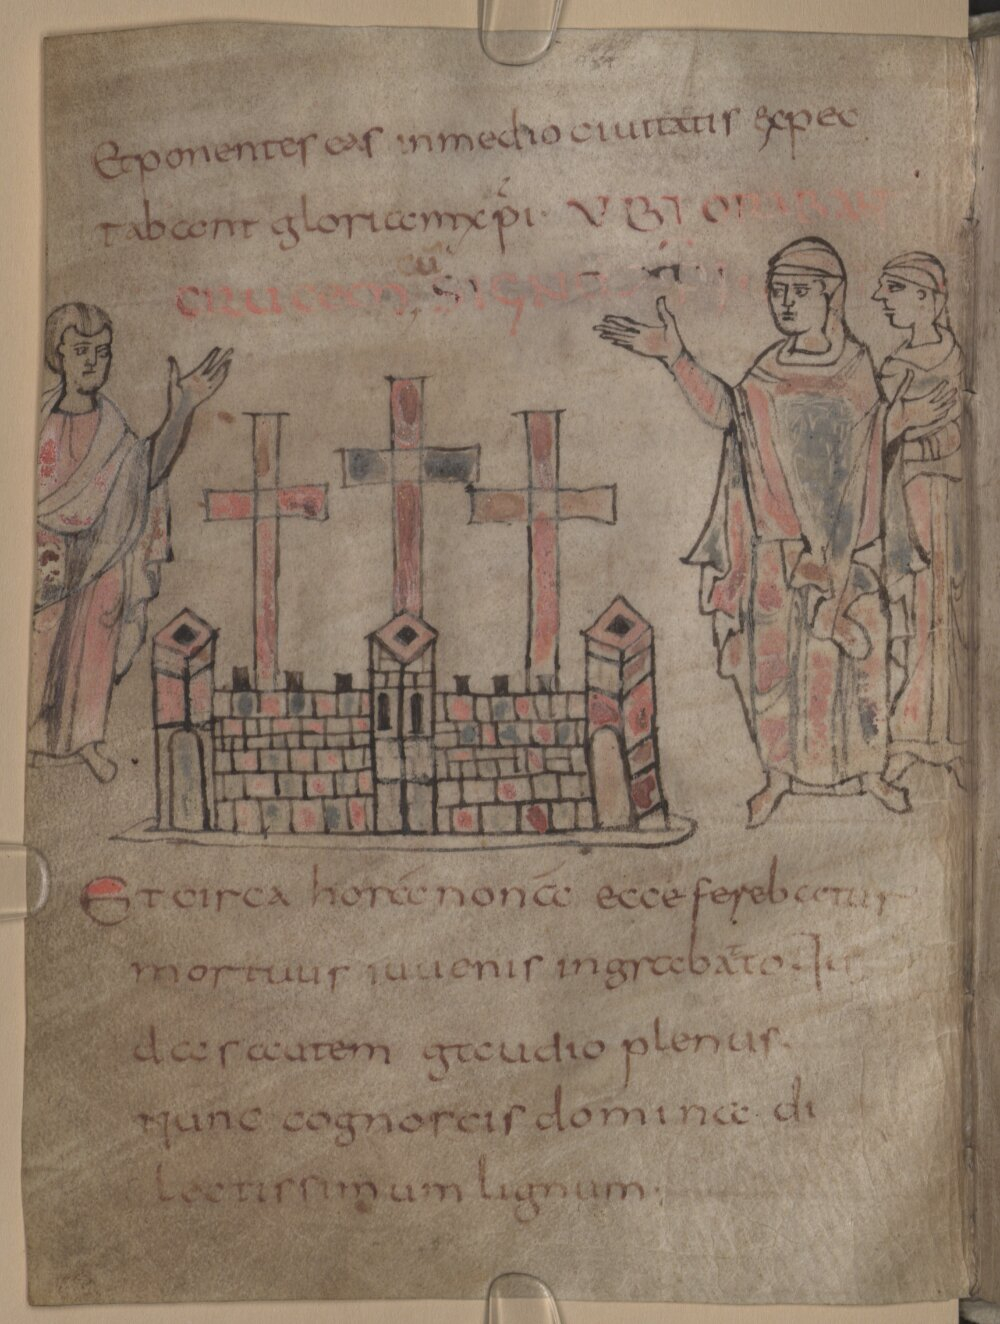 Et ponentes eas in medio ciuitatis expec
tabant gloriam xpi. UBI
crucem cu SIGNO
Et circa hora nona ecce ferebatur
mortuus iuuenis in grabato Iu
das autem gaudio plenus.
Nunc cognoscis domina di
lectissimum lignum.